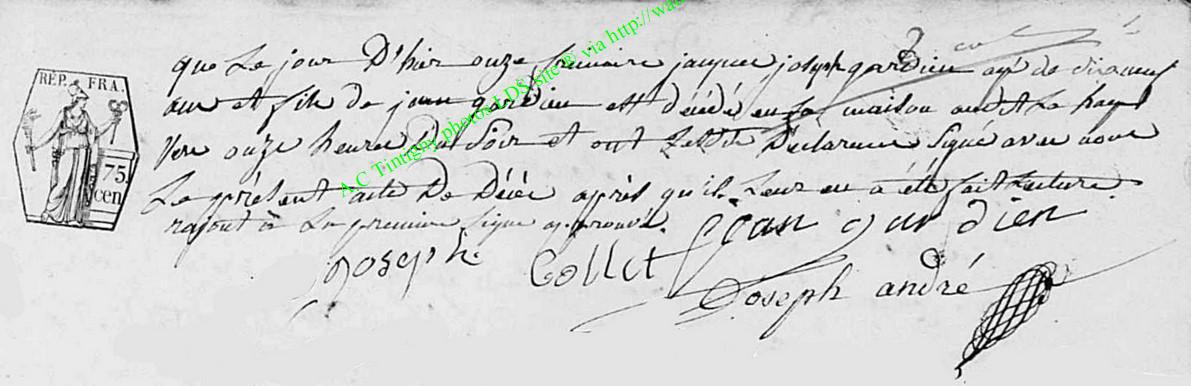 RÉP. FRA.
75.
cen
A.C Tintigny photos LDS, site ® via http://wa
que Le jour D'hier onze frimaire jacque joseph gardien agé de dixneuf
ans et fils de jean gardien est décédé en sa maison audit Le han
Vers onze heures Du Soir et ont Lesdits Déclarans Signé avec nous
Le présent acte De Décée après qu'il Leur en a été fait Lecture
rajout à La première Ligne approuvé.
joseph Collet jean gardien
Joseph andré